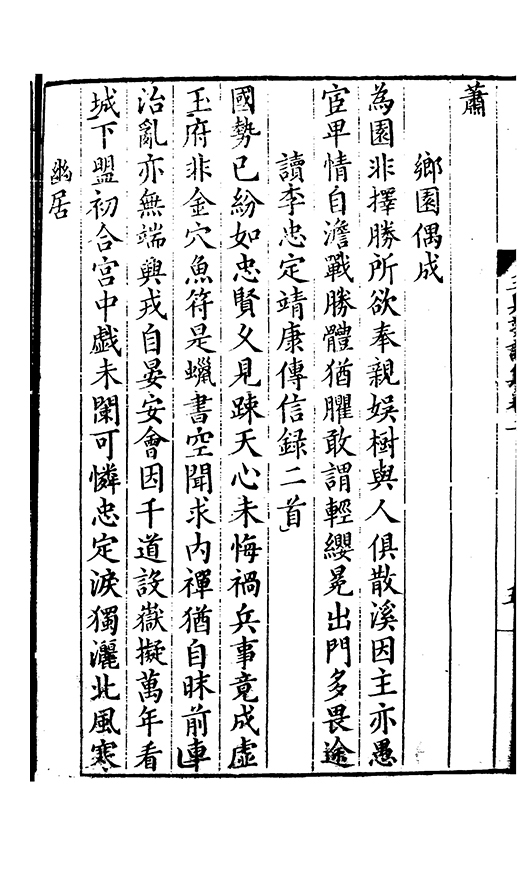 蕭
鄉園偶成
為園非擇勝所欲奉親娛樹與人俱散溪因主亦愚
宦卑情自澹戰勝體猶臞敢謂輕纓冕出門多畏途
讀李忠定靖康傳信録二首
國勢已紛如忠賢又見踈天心未悔禍兵事竟成虛
玉府非金穴魚符是蠟書空聞求内禪猶自昧前車
治亂亦無端興戎自晏安會因千道設嶽擬萬年看
城下盟初合宮中戯未闌可憐忠定淚獨灑北風寒
幽居